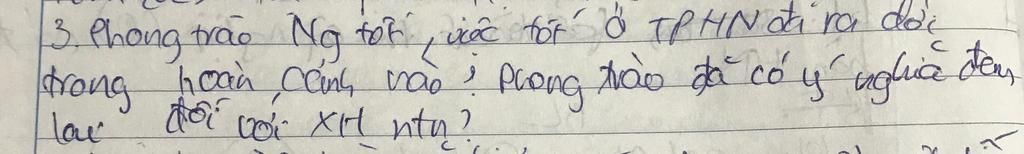 3. Phong trào Ng tốt, việc tốt ở TPHN đã ra đời
trong hoàn cảnh nào? Phong trào đã có ý nghĩa đem
lại đối với XH ntn?